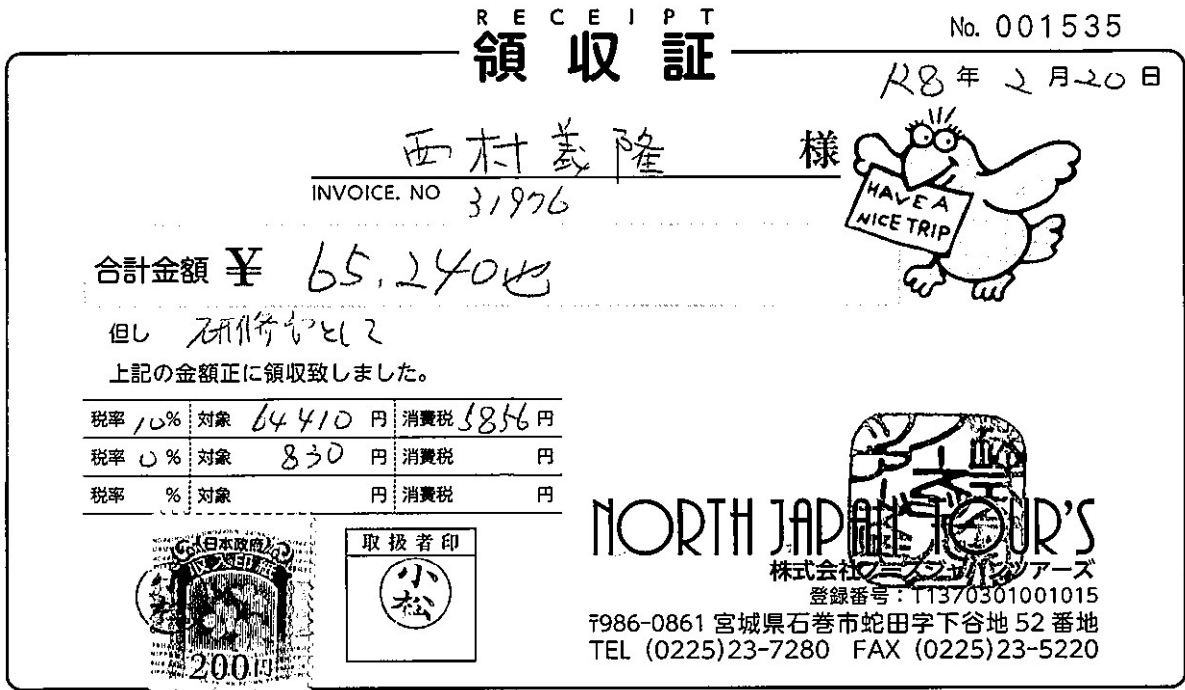 RECEIPT
領収証
No. 001535
R8年 2月20日
西村義隆 様
INVOICE. NO 31976
HAVE A
NICE TRIP
合計金額 ¥ 65,240也
但し 研修費として
上記の金額正に領収致しました。
税率 10% 対象 64410 円 消費税 5856 円
税率 0 % 対象 830 円 消費税 円
税率 % 対象 円 消費税 円
日本政府
収入印紙
200円
小松
取扱者印
小松
NORTH JAPAN TOUR'S
株式会社ノースジャパンツアーズ
登録番号：T1370301001015
〒986-0861 宮城県石巻市蛇田字下谷地 52 番地
TEL (0225)23-7280 FAX (0225)23-5220